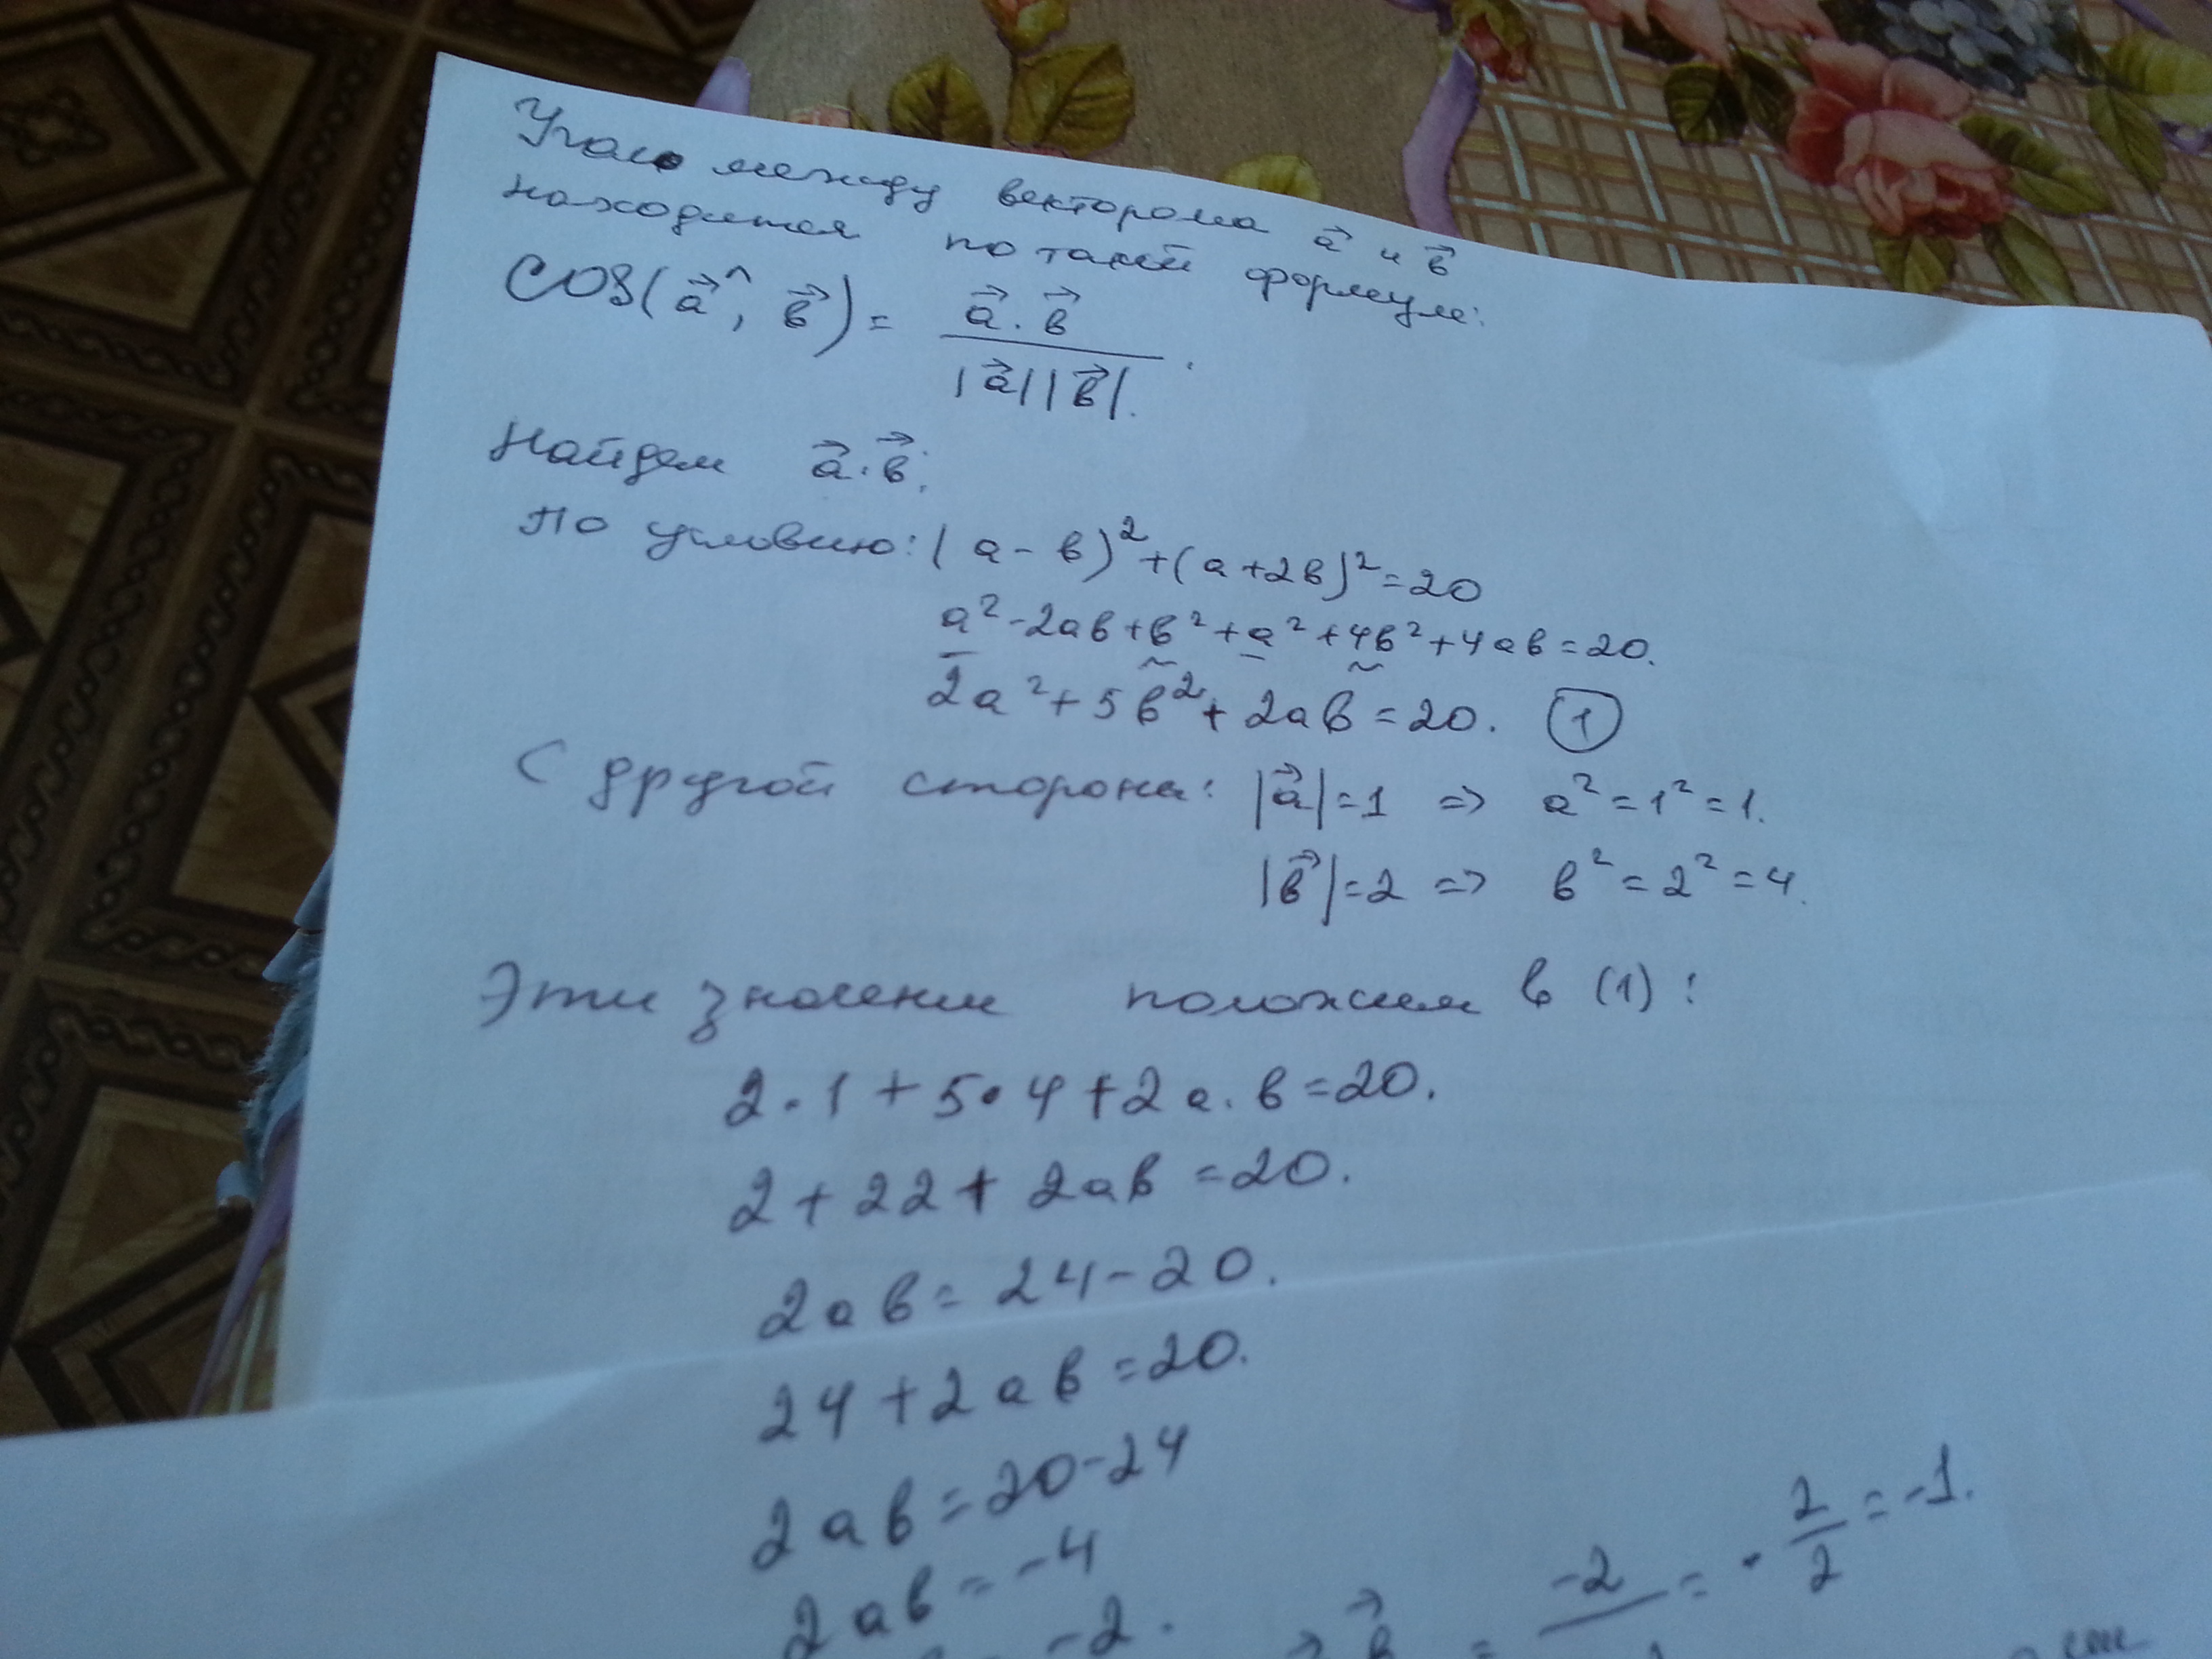 Угол между векторами a⃗ и b⃗
находится по такой формуле:
cos(a⃗^, b⃗) = a⃗·b⃗ / |a⃗||b⃗|.
Найдем a⃗·b⃗:
По условию: (a-b)²+(a+2b)²=20
a²-2ab+b²+a²+4b²+4ab=20.
2a²+5b²+2ab=20. (1)
С другой стороны: |a⃗|=1 => a²=1²=1.
|b⃗|=2 => b²=2²=4.
Эти значения положим в (1):
2·1+5·4+2a·b=20.
2+22+2ab=20.
2ab=24-20.
24+2ab=20.
2ab=20-24
2ab=-4
-2. b⃗ = -2/ = -2/2=-1.